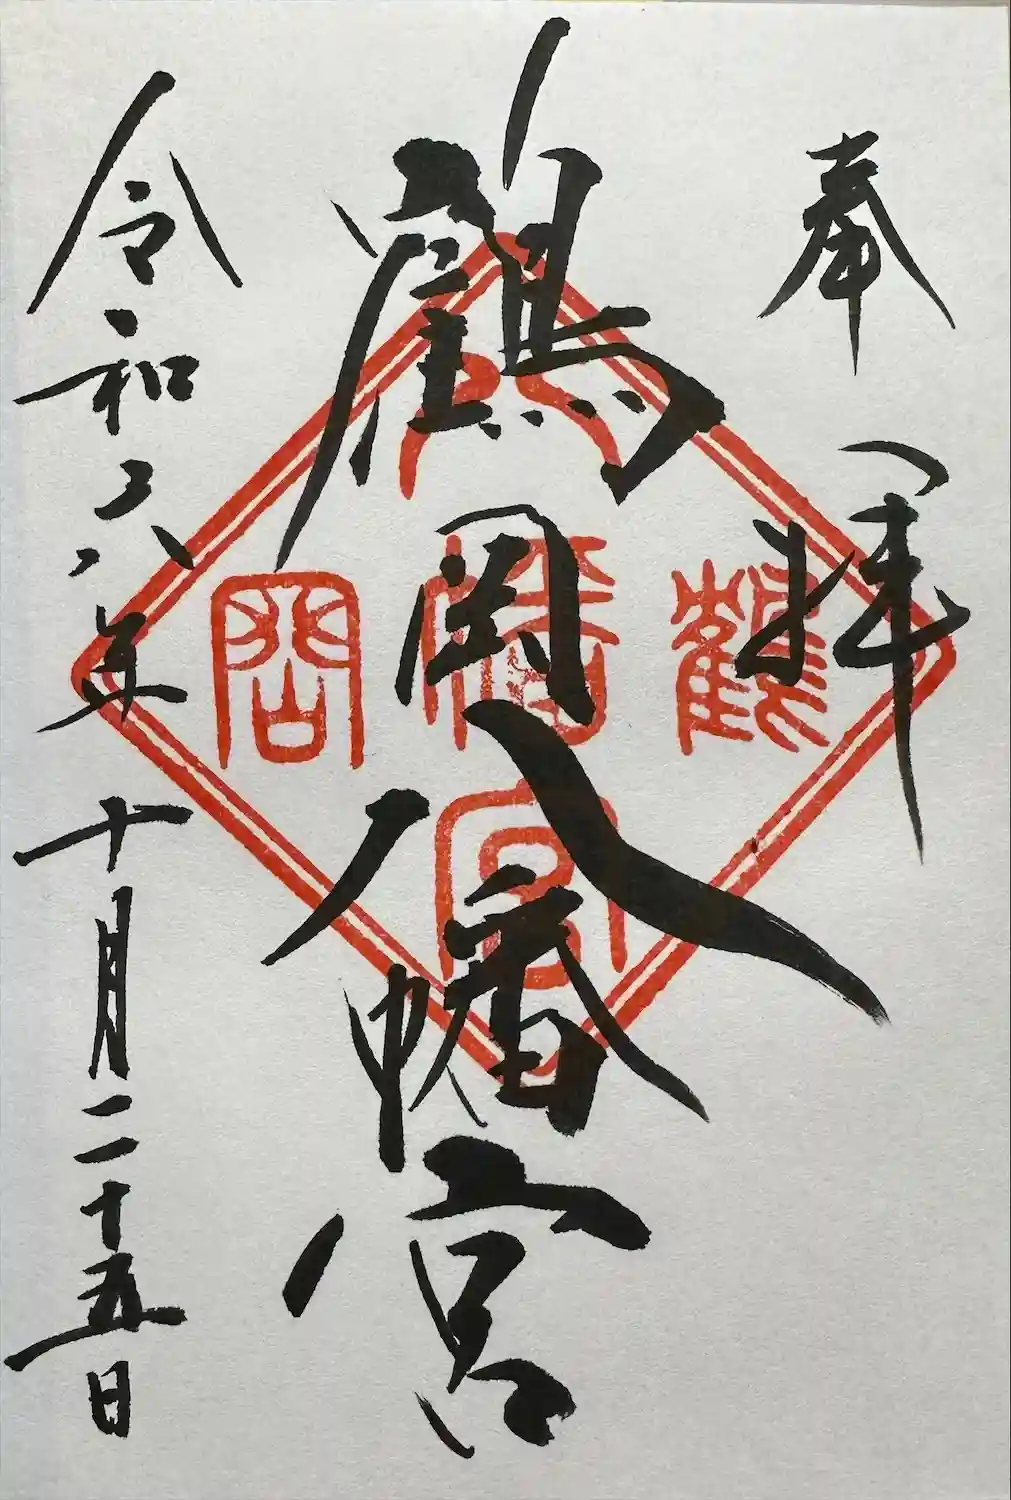 奉拝
鶴岡八幡宮
令和六年十月二十五日
鶴
幡
宮
岡